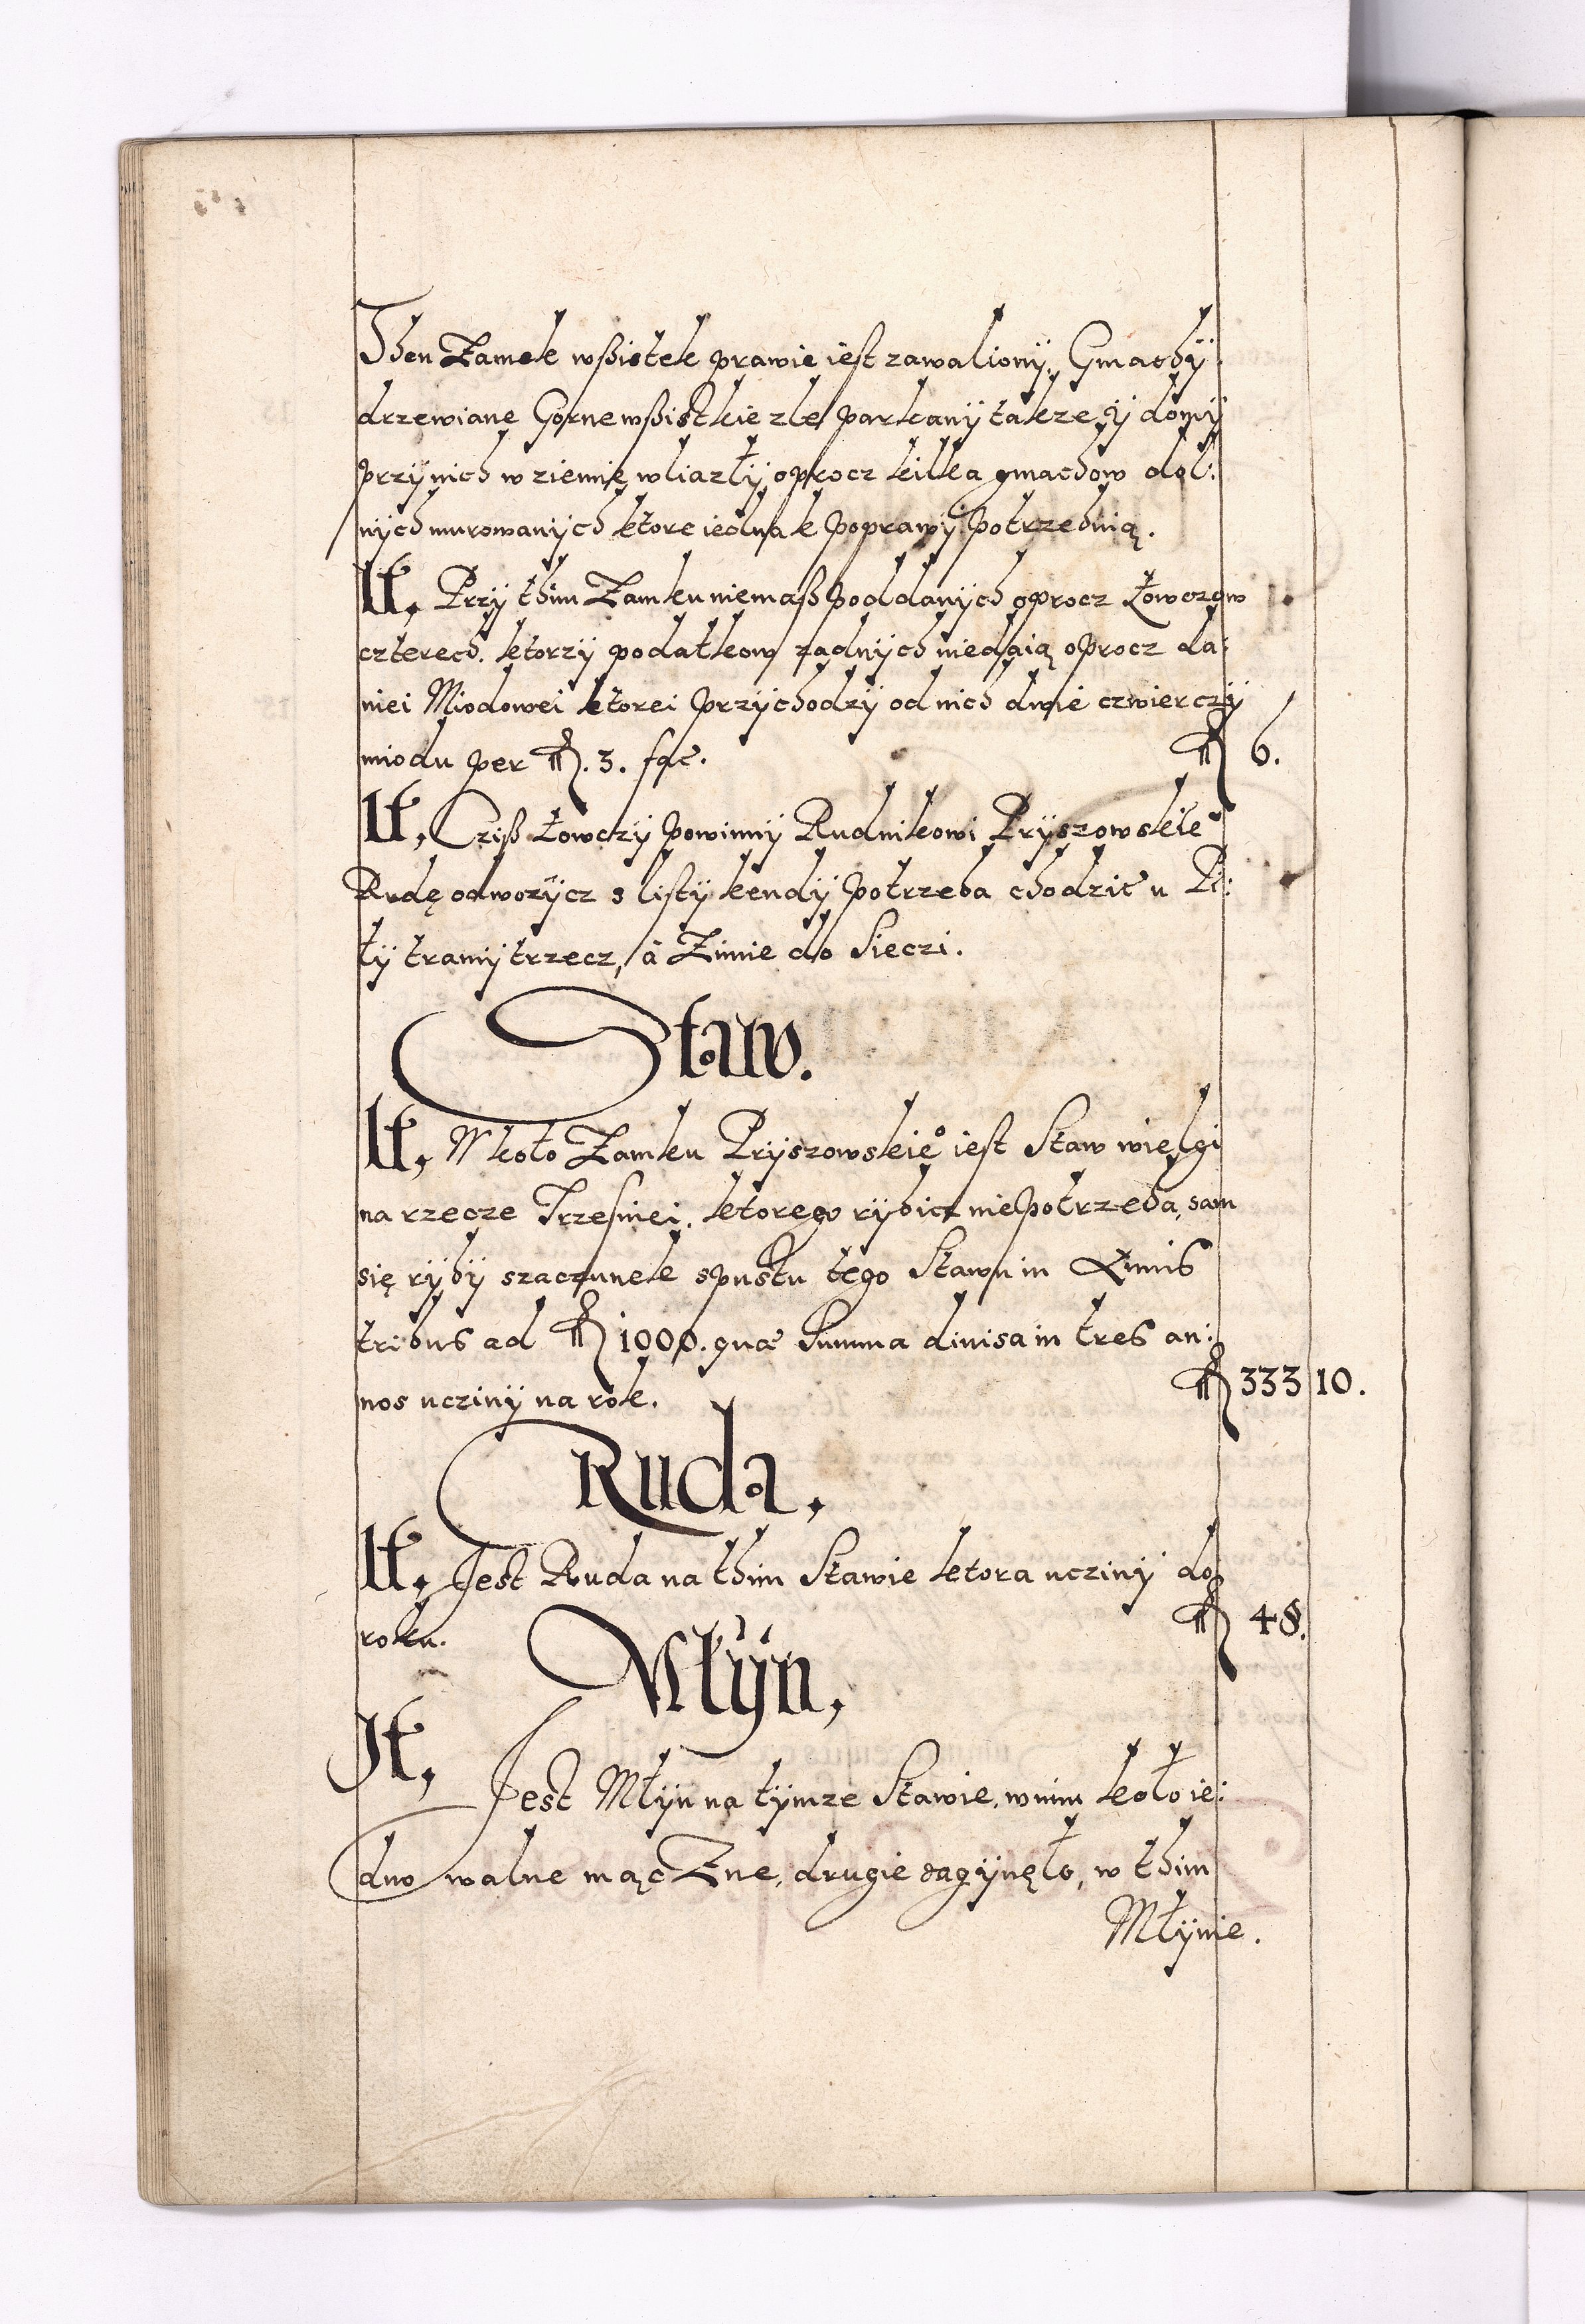 Then Zamek wßistek prawie iest zawalionÿ, Gmachÿ
drzewiane Gorne wßistkie zle parkanÿ takze ÿ domÿ
przÿ nich w ziemię wliazłÿ oprocz kilka gmachow dol:
nÿch murowanÿch ktore iednak poprawÿ potrzebuią.
It, Przÿ thim Zamku niemaß poddanÿch oprocz Łowczow
czterech. ktorzÿ podatkow zadnÿch niedaią oprocz da:
niei Miodowei ktorei przÿchodzÿ od nich dwie czwierczÿ
miodu per fl. 3. fac. fl 6.
It, Cziß Łowczÿ powinnÿ Rudnikowi Pÿszowskie°
Rudę odwozÿcz s listÿ kendÿ potrzeba chodzić u Pi:
łÿ tramÿ trzecz, à Zimie do Sieczi.
Staw.
It, Wkoło Zamku Pÿszowskie° iest Staw wielgi
na rzecze Trzesnei, ktorego rÿbicz nie potrzeba, sam
się rÿbÿ szaczunek spustu tego Stawu in Annis
tribus ad fl 1000. quæ Summa diuisa in tres an:
nos ucziny na rok. fl 333 10.
Ruda,
It, Jest Ruda na thim Stawie ktora uczinÿ do
roku. fl 48.
Młÿn,
It, Jest Młÿn na tÿmze Stawie, w nim koło ie:
dno walne mączne, drugie zagÿnęło, w thim
Młÿnie.